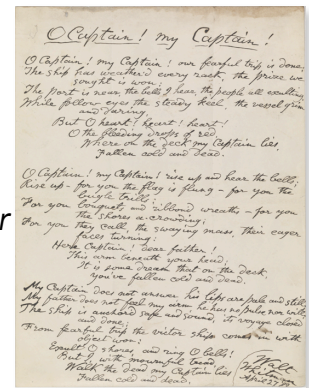 O Captain! my Captain!
O Captain! my Captain! our fearful trip is done;
The ship has weather'd every rack, the prize we
sought is won;
The port is near, the bells I hear, the people all exulting,
While follow eyes the steady keel, the vessel grim
and daring.
But O heart! heart! heart!
O the bleeding drops of red,
Where on the deck my Captain lies,
Fallen cold and dead.
O Captain! my Captain! rise up and hear the bells;
Rise up - for you the flag is flung - for you the
bugle trills;
For you bouquets and ribbon'd wreaths - for you
the shores a-crowding;
For you they call, the swaying mass, their eager
faces turning;
Here Captain! dear father!
This arm beneath your head;
It is some dream that on the deck
You've fallen cold and dead.
My Captain does not answer, his lips are pale and still;
My father does not feel my arm, he has no pulse nor will;
The ship is anchor'd safe and sound, its voyage closed
and done;
From fearful trip the victor ship comes in with
object won;
Exult O shores, and ring O bells!
But I, with mournful tread
Walk the deck my Captain lies
Fallen cold and dead.
Walt
Whitman
r